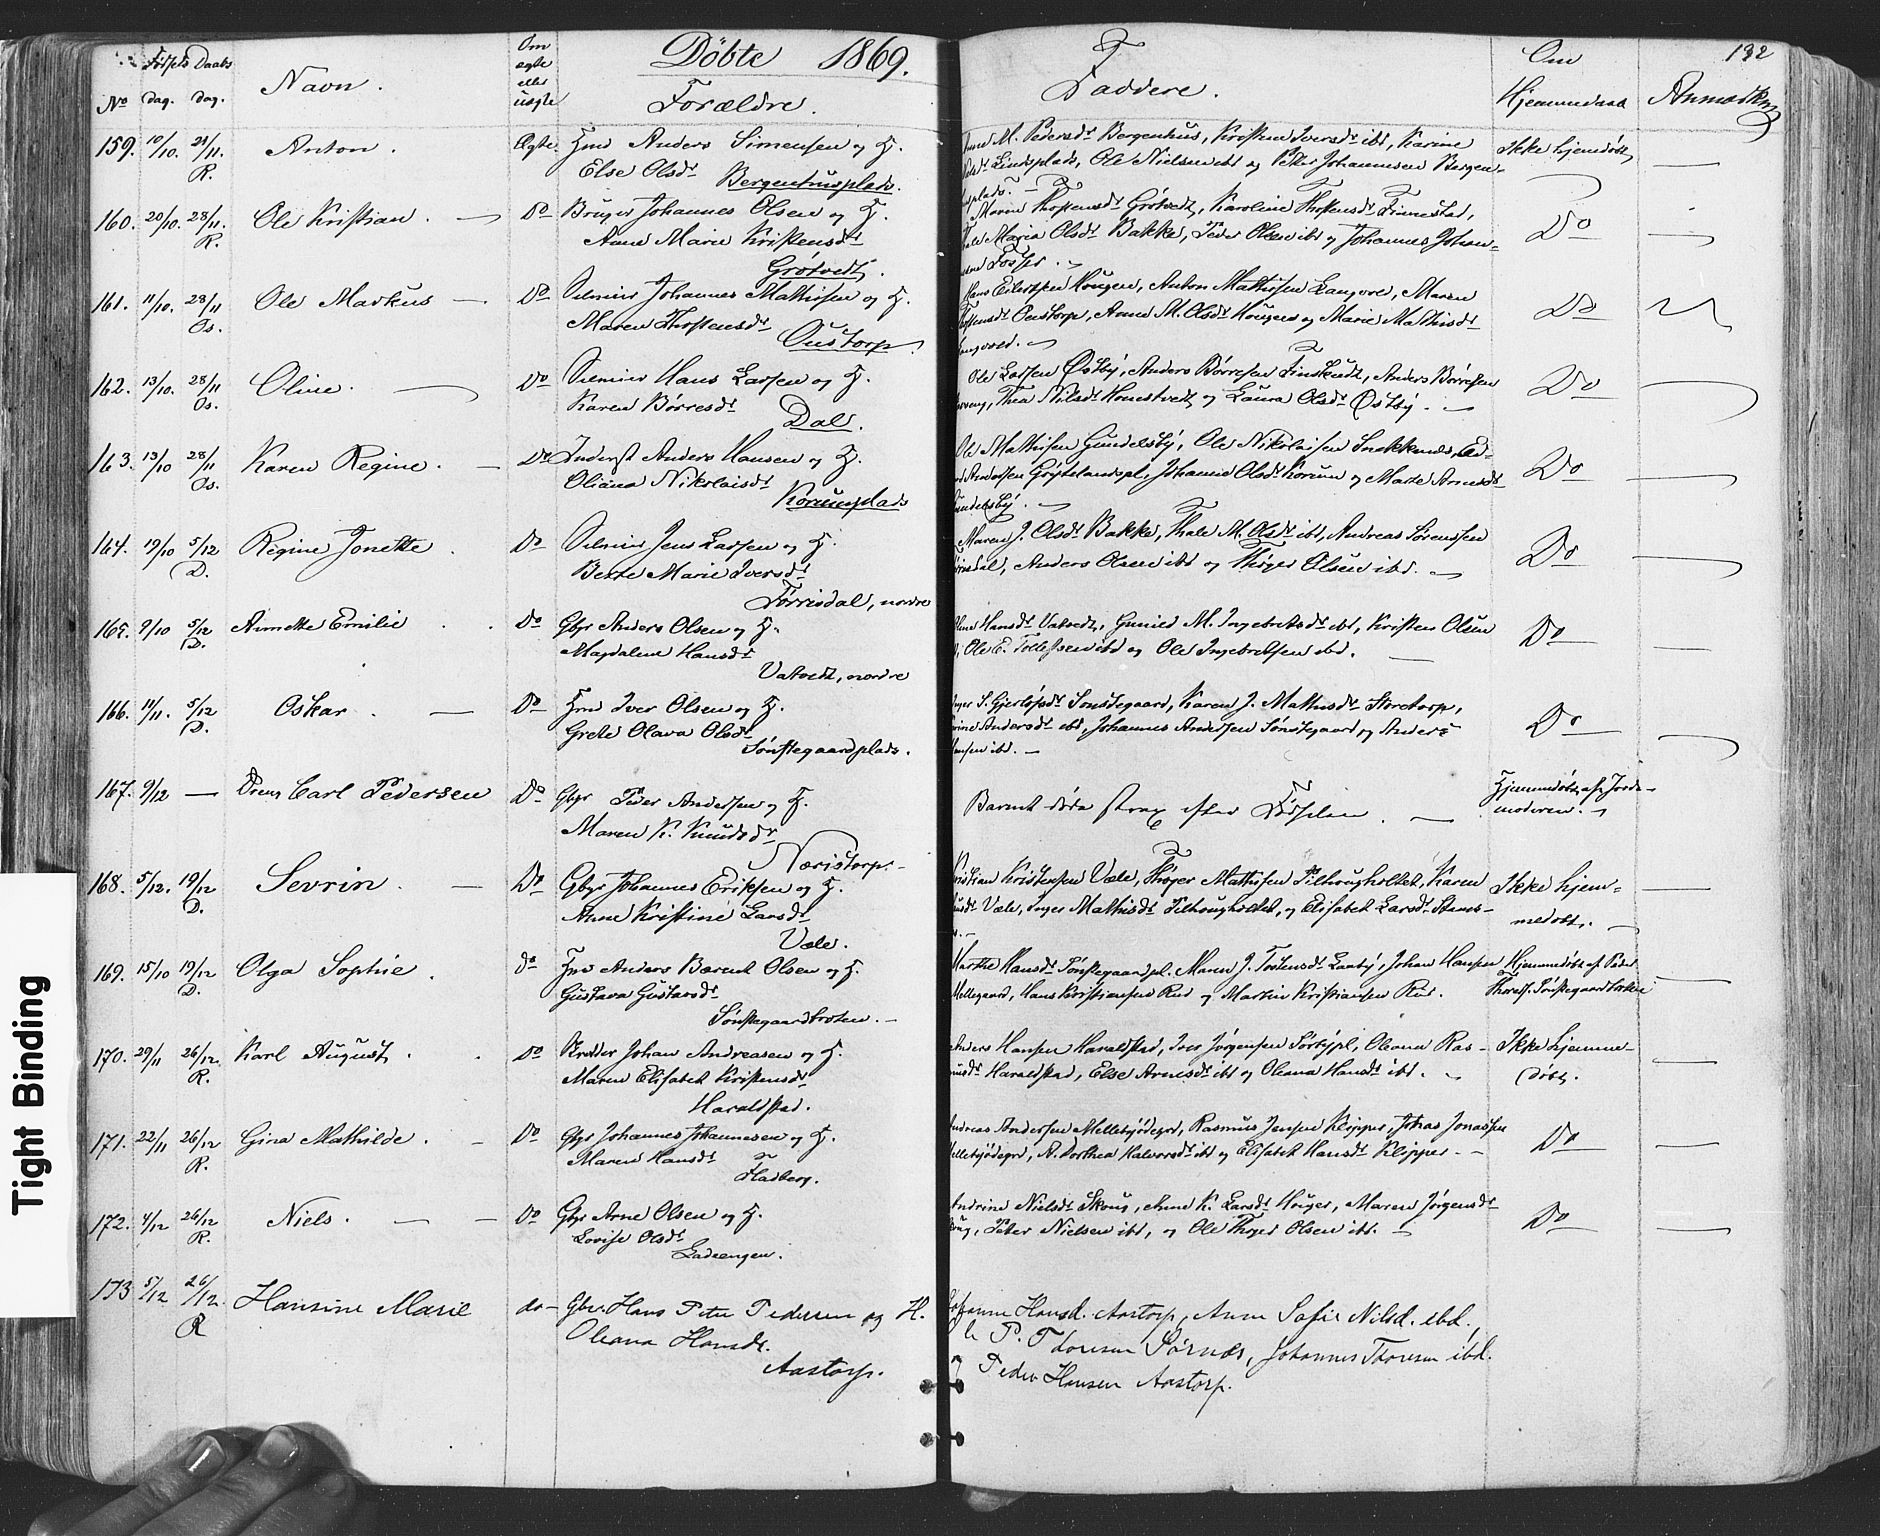 Döbte 1869.
No
Födsels dag.
Daabs dag.
Navn.
Om ægte eller uægte
Forældre.
Faddere.
Om Hjemmedaab
Anmærkn.
132
159. 10/10. 21/11. R. Anton. Ægte. Hmd Anders Simensen og H.
Else Olsdr Bergenhusplads.
M. Pedersdr Bergenhus, Kristen Iversdr ibd, Karine
Lindsplads, Ole Nielsen ibd og Petter Johannesen Bergen-
plads.
Ikke hjemdöbt
160. 20/10. 28/11. R. Ole Kristian. Do Bruger Johannes Olsen og H.
Anne Marie Kristensdr
Grötvedt.
Maren Thostensdr Grötvedt, Karoline Thostensdr Finnestad,
Maria Olsdr Bakke, Peder Olsen ibd og Johannes Johan-
Fosser.
Do
161. 11/10. 28/11 Os. Ole Markus Do Selveier Johannes Mathisen og H.
Maren Thostensdr
Oustorp.
Hans Eilertsen Hougen, Anton Mathisen Langvold, Maren
Oustorp, Anne M. Olsdr Hougen og Marie Mathisdr
Do
162. 13/10. 28/11 Os. Oline. Do Selveier Hans Larsen og H.
Karen Börresdr
Dal.
Ole Larsen Östby, Anders Börresen Finskudt, Anders Börresen
Thea Nilsdr Homstvedt og Laura Olsdr Östby.
Do
163. 13/10 28/11 Os. Karen Regine. Do Inderst Anders Hansen og H.
Oliana Nikolaisdr
Kornumplads
Ole Mathisen Gundelsby, Ole Nikolaisen Snekkenes, Ed-
Andersen Gröjtelandspl, Johanne Olsdr Kornum og Marte Arnesdr
Gundelsby.
Do
164. 19/10 5/12 D. Regine Jonette. Do Selveier Jens Larsen og H.
Berte Marie Iversdr
Törrisdal, nordre
Maren J. Olsdr Bakke, Thale M. Olsdr ibd, Andreas Sörenssen
Anders Olsen ibd og Thöger Olsen ibd.
Do
165. 9/10 5/12 D. Annette Emilie. Do Gbr Anders Olsen og H.
Magdalene Hansdr
Vatvedt, nordre
Hansdr Vatvedt, Gunild M. Ingebretsdr ibd, Kristen Olsen
Ole E. Tollefssen ibd og Ole Ingebretsen ibd.
Do
166. 11/11. 5/12 D. Oskar. Do Hmd Iver Olsen og H.
Grete Olava Olsdr
Sönstegaardplads.
S. Gjerlöfsdr Sönstegaard, Karen J. Mathisdr Storetorp,
Andersdr ibd, Johannes Andersen Sönstegaard og Anders
ibd.
Do
167. 9/12 Dreng Carl Pedersen Do Gbr Peder Andersen og H.
Maren K. Knudsdr
Næristorp.
Barnet döde strax efter Födselen.
Hjemmedöbt af Jorde-
moderen.
168. 5/12. 19/12 D. Sevrin. Do Gbr Johannes Eriksen og H.
Anne Kristine Larsdr
Væle.
Kristian Kristensen Væle, Thöger Mathisen Tilhougholtet, Karen
Væle, Inger Mathisdr Tilhougholtet, og Elisabet Larsdr
Ikke hjem-
medöbt.
169. 15/10 19/12 D. Olga Sophie. do Hmd Anders Bærent Olsen og H.
Gustava Gustavsdr
Sönstegaardbroten.
Marthe Hansdr Sönstegaardpl. Maren J. Tostensdr Laaby, Johan Hansen
Mellegaard, Hans Kristiansen Rud og Martin Kristiansen Rud.
Hjemmedöbt af Peder
170. 29/11 26/12. R. Karl August. Do Johan Andreasen og H.
Maren Elisabet Kristensdr
Haraldstad.
Anders Hansen Haraldstad, Iver Jörgensen Sörbypl, Oleana Ras-
Haraldstad, Else Arnesdr ibd og Oleana Hansdr ibd.
Ikke hjemme-
döbt.
171. 22/11 26/12 R. Gina Mathilde. Do Gbr Johannes Johannesen og H.
Maren Hansdr
Fladberg.
Andreas Andersen Mellebyödegrd, Rasmus Jensen Klipper, Johas Jonassen
Mellebyödegrd, A. Dorthea Halvorsdr ibd og Elisabet Hansdr Klipper.
Do
172. 4/12 26/12 R. Niels. Do Gbr Arne Olsen og H.
Lovise Olsdr
Ladeengen.
Andrine Nielsdr Skoug, Anne K. Larsdr Houger, Maren Jörgensdr
Peter Nielsen ibd, og Ole Thoger Olsen ibd.
Do
173 5/12 26/12. R Hansine Marie do Gbr. Hans Peter Pedersen og H.
Oleana Hansdr.
Aastorp.
Johanne Hansd. Aastorp, Anne Sofie Nilsd. ibd.,
Ole P. Thoresen Sörnæs, Johannes Thoresen ibd.
og Peder Hansen Aastorp.
Tight Binding